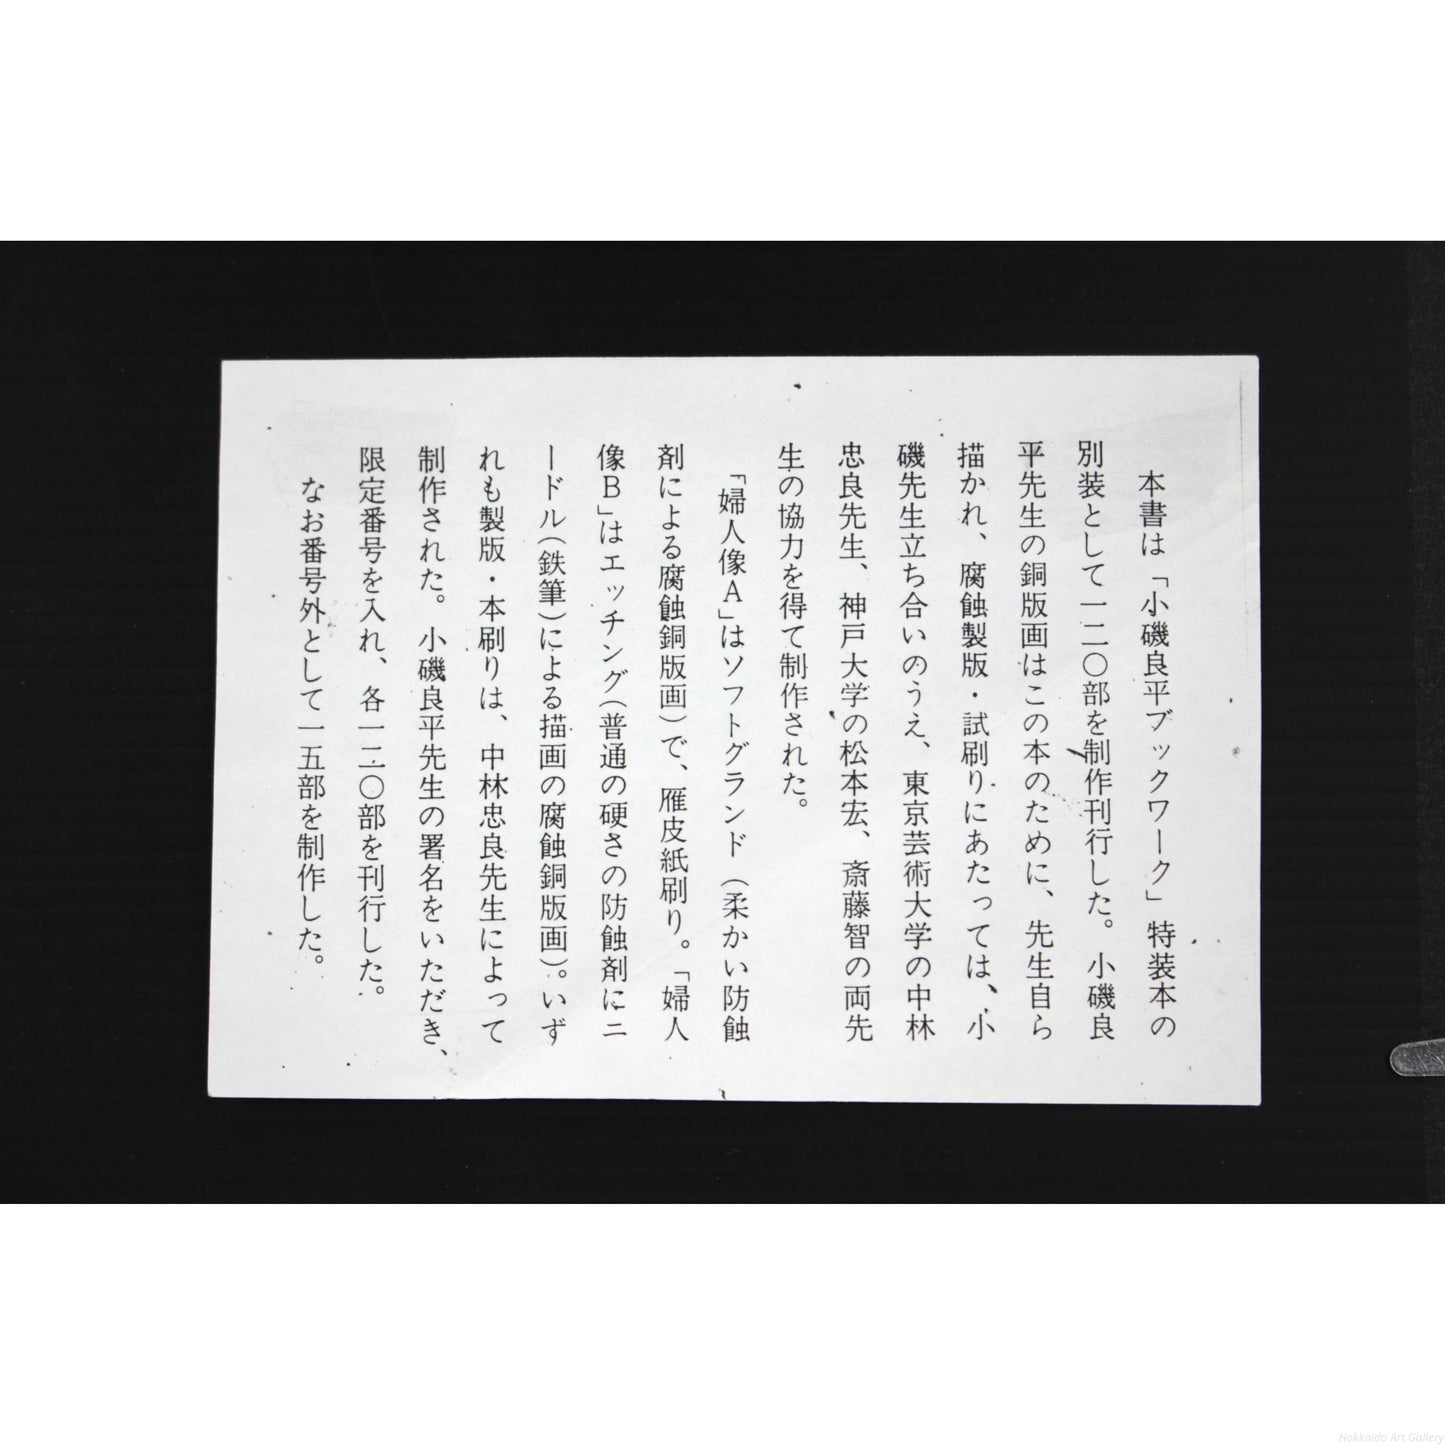 本書は「小磯良平ブックワーク」特装本の
別装として一二〇部を制作刊行した。小磯良
平先生の銅版画はこの本のために、先生自ら
描かれ、腐蝕製版・試刷りにあたっては、小
磯先生立ち合いのうえ、東京芸術大学の中林
忠良先生、神戸大学の松本宏、斎藤智の両先
生の協力を得て制作された。
「婦人像A」はソフトグランド（柔かい防蝕
剤による腐蝕銅版画）で、雁皮紙刷り。「婦人
像B」はエッチング（普通の硬さの防蝕剤にニ
ードル（鉄筆）による描画の腐蝕銅版画）。いず
れも製版・本刷りは、中林忠良先生によって
制作された。小磯良平先生の署名をいただき、
限定番号を入れ、各一二〇部を刊行した。
なお番号外として一五部を制作した。
Hokkaido Art Gallery